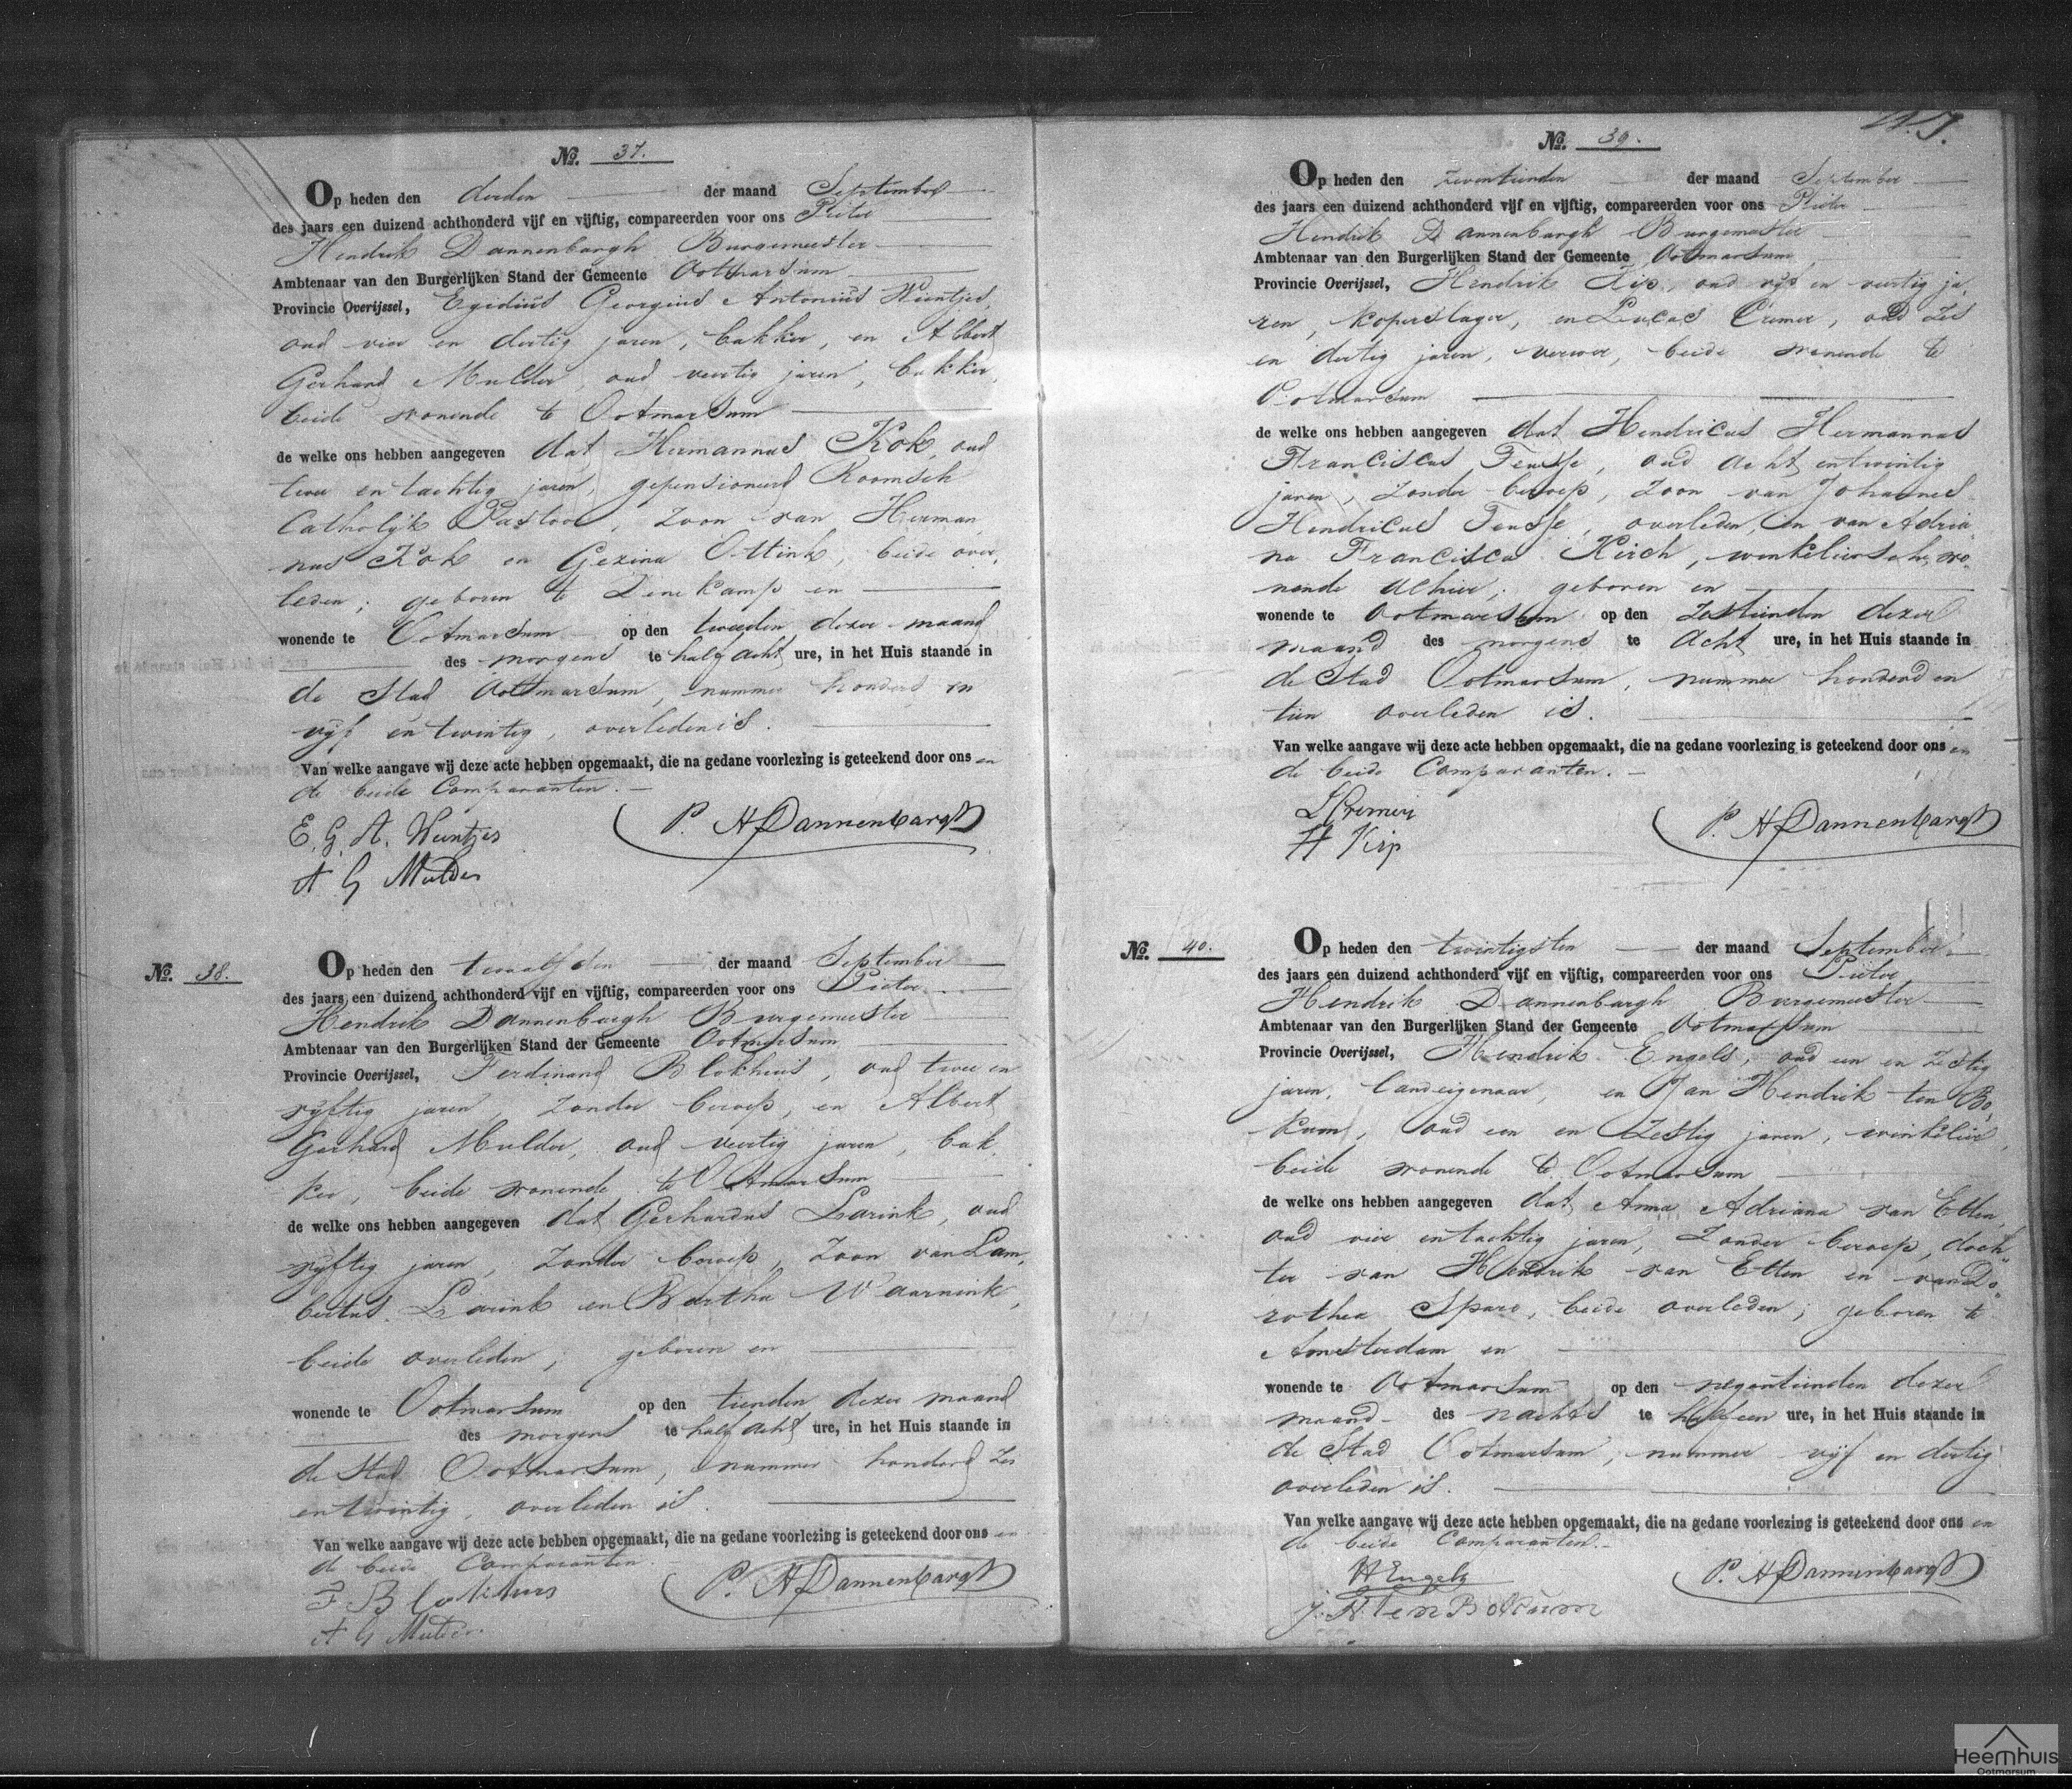 No. 37.
Op heden den derden der maand September
des jaars een duizend achthonderd vijf en vijftig, compareerden voor ons Pieter
Hendrik Dannenbargh Burgemeester
Ambtenaar van den Burgerlijken Stand der Gemeente Ootmarsum
Provincie Overijssel, Egedius Georgius Antonius Weintjes,
oud vier en dertig jaren, bakker, en Albert
Gerhard Mulder, oud veertig jaren, bakker,
beide wonende te Ootmarsum
de welke ons hebben aangegeven dat Hermannus Kok, oud
twee en tachtig jaren, gepensioneerd Roomsch
Catholijk Pastoor, zoon van Herman
nus Kok en Gezina Ottink, beide over,
leden; geboren te Denekamp en
wonende te Ootmarsum op den tweeden dezer maand
des morgens te half acht ure, in het Huis staande in
de Stad Ootmarsum, nummer honderd en
vijf en twintig, overleden is.
Van welke aangave wij deze acte hebben opgemaakt, die na gedane voorlezing is geteekend door ons en
de beide Comparanten.
E. G. A. Weintjes
P. H Dannenbargh
A G Mulder
No. 38.
Op heden den twaalfden der maand September
des jaars een duizend achthonderd vijf en vijftig, compareerden voor ons Pieter
Hendrik Dannenbargh Burgemeester
Ambtenaar van den Burgerlijken Stand der Gemeente Ootmarsum
Provincie Overijssel, Ferdinand Blokhuis, oud twee en
vijftig jaren, zonder beroep, en Albert
Gerhard Mulder, oud veertig jaren, bak,
ker, beide wonende te Ootmarsum
de welke ons hebben aangegeven dat Gerhardus Larink, oud
vijftig jaren, zonder beroep, zoon van Lam,
bertus Larink en Bertha Waarnink,
beide overleden; geboren en
wonende te Ootmarsum op den tienden dezer maand
des morgens te half acht ure, in het Huis staande in
de Stad Ootmarsum, nummer honderd zes
en twintig, overleden is.
Van welke aangave wij deze acte hebben opgemaakt, die na gedane voorlezing is geteekend door ons en
de beide Comparanten.
F Blokhuis
P. H Dannenbargh
A G Mulder
No. 39.
Op heden den zeventienden der maand September
des jaars een duizend achthonderd vijf en vijftig, compareerden voor ons Pieter
Hendrik Dannenbargh Burgemeester
Ambtenaar van den Burgerlijken Stand der Gemeente Ootmarsum
Provincie Overijssel, Hendrik Kip, oud vijf en veertig ja,
ren, koperslager, en Lucas Cremer, oud zes
en dertig jaren, verwer, beide wonende te
Ootmarsum
de welke ons hebben aangegeven dat Hendricus Hermannus
Franciscus Teusse, oud acht en twintig
jaren, zonder beroep, zoon van Johannes
Hendricus Teusse, overleden, en van Adria,
na Francisca Kerch, winkeliersche, wo,
nende alhier; geboren en
wonende te Ootmarsum op den zestienden dezer
maand des morgens te acht ure, in het Huis staande in
de Stad Ootmarsum, nummer honderd en
tien overleden is.
Van welke aangave wij deze acte hebben opgemaakt, die na gedane voorlezing is geteekend door ons en
de beide Comparanten.
L Cremer
P. H Dannenbargh
H Kip
No. 40.
Op heden den twintigsten der maand September
des jaars een duizend achthonderd vijf en vijftig, compareerden voor ons Pieter
Hendrik Dannenbargh Burgemeester
Ambtenaar van den Burgerlijken Stand der Gemeente Ootmarsum
Provincie Overijssel, Hendrik Engels, oud een en zestig
jaren, landeigenaar, en Jan Hendrik ten Bo,
kum, oud een en zestig jaren, winkelier,
beide wonende te Ootmarsum
de welke ons hebben aangegeven dat Anna Adriana van Etten,
oud vier en tachtig jaren, zonder beroep, doch
ter van Hendrik van Etten en van Do,
rothea Sparo, beide overleden; geboren te
Amsterdam en
wonende te Ootmarsum op den negentienden dezer
maand des nachts te half een ure, in het Huis staande in
de Stad Ootmarsum, nummer vijf en dertig
overleden is.
Van welke aangave wij deze acte hebben opgemaakt, die na gedane voorlezing is geteekend door ons en
de beide Comparanten.
H Engels
P. H Dannenbargh
J. H. ten Bokum
Heemhuis
Ootmarsum